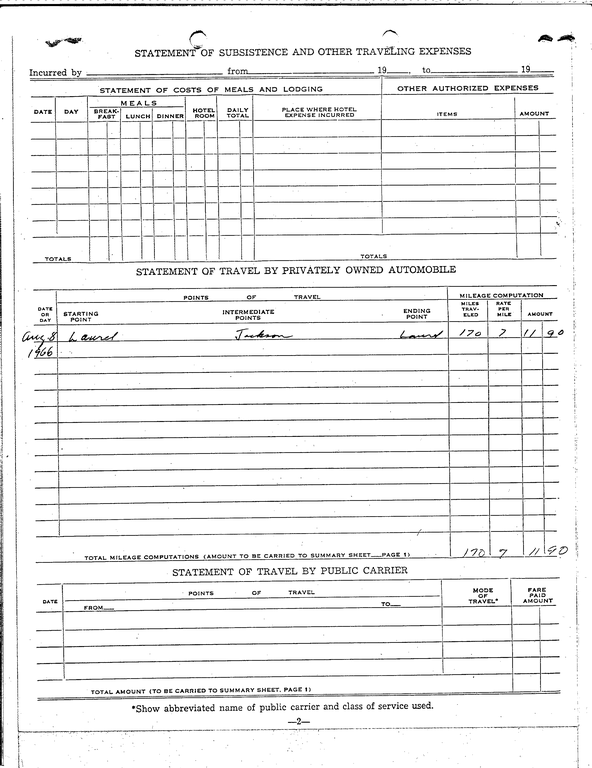 STATEMENT OF SUBSISTENCE AND OTHER TRAVELING EXPENSES
Incurred by from 19 , to 19
STATEMENT OF COSTS OF MEALS AND LODGING OTHER AUTHORIZED EXPENSES
DATE DAY MEALS BREAK-FAST LUNCH DINNER HOTEL ROOM DAILY TOTAL PLACE WHERE HOTEL EXPENSE INCURRED ITEMS AMOUNT
TOTALS TOTALS
STATEMENT OF TRAVEL BY PRIVATELY OWNED AUTOMOBILE
DATE OR DAY POINTS OF TRAVEL MILEAGE COMPUTATION
STARTING POINT INTERMEDIATE POINTS ENDING POINT MILES TRAV-ELED RATE PER MILE AMOUNT
Aug 8 Laurel Jackson Laurel 170 7 11 90
1966
TOTAL MILEAGE COMPUTATIONS (AMOUNT TO BE CARRIED TO SUMMARY SHEET—PAGE 1) 170 7 11 90
STATEMENT OF TRAVEL BY PUBLIC CARRIER
DATE POINTS OF TRAVEL MODE OF TRAVEL* FARE PAID AMOUNT
FROM— TO—
TOTAL AMOUNT (TO BE CARRIED TO SUMMARY SHEET, PAGE 1)
*Show abbreviated name of public carrier and class of service used.
—2—